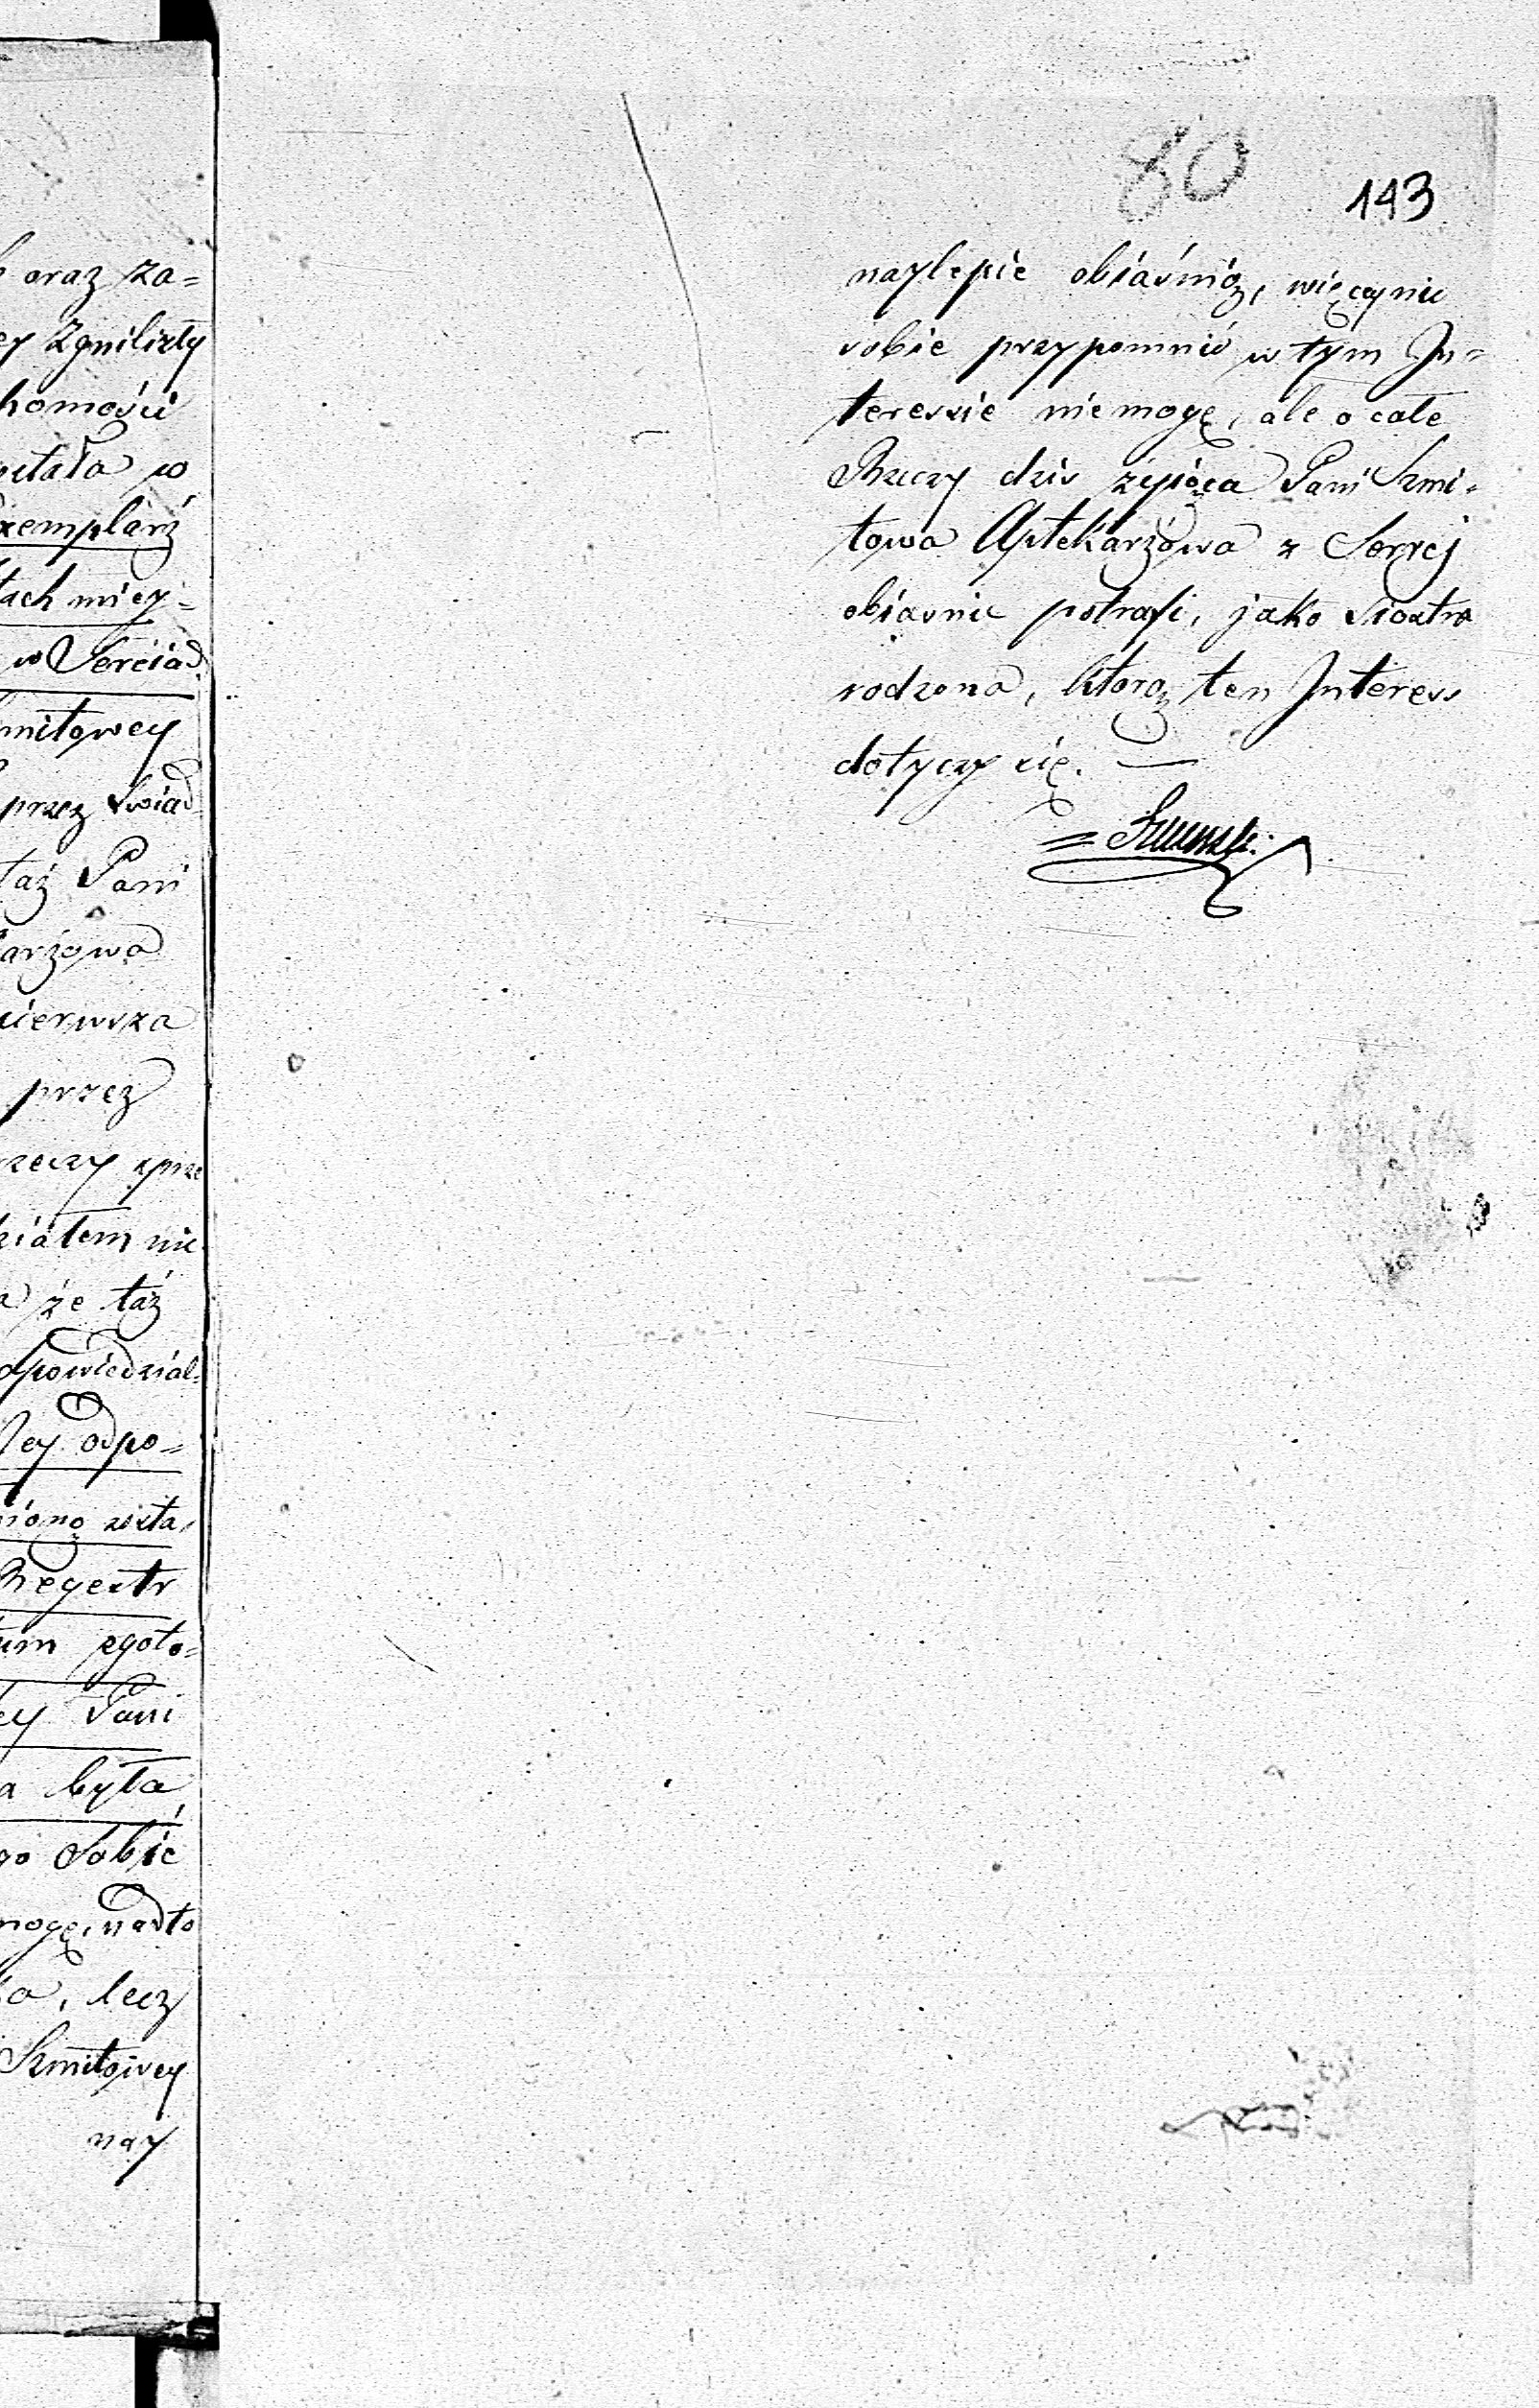 oraz za=
ey zgnilizty
homości
ostała w
Exemplarz
tach miey=
w Serciad
mitowey
przez Swiad
taż Pani
arzowa
pierwsza
przez
rzeczy sprze
działem nie
że taż
odpowiedzial=
Jey odpo=
niono zosta,
Regestr
um zgoto=
ey Pani
a była
go Sobie
mogę, nadto
lecz
Szmitowey
nay
80 143
naylepie obiaśnią, więcey nic
sobie przypomnić w tym In=
teressie niemogę, ale o całe
Rzeczy dziś żyiąca Pani Szmi=
towa Aptekarzowa z Serrej
obiasnić potrafi, jako siostra
rodzona, którą ten Interess
dotyczy się. —